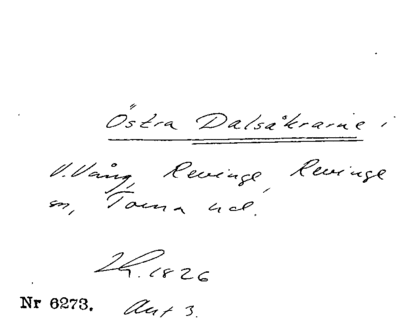 Östra Dalsåkrarne i
V. Vång, Revinge, Revinge
sn, Torna hd.
Lh. 1826
Nr 6273. Akt 3.